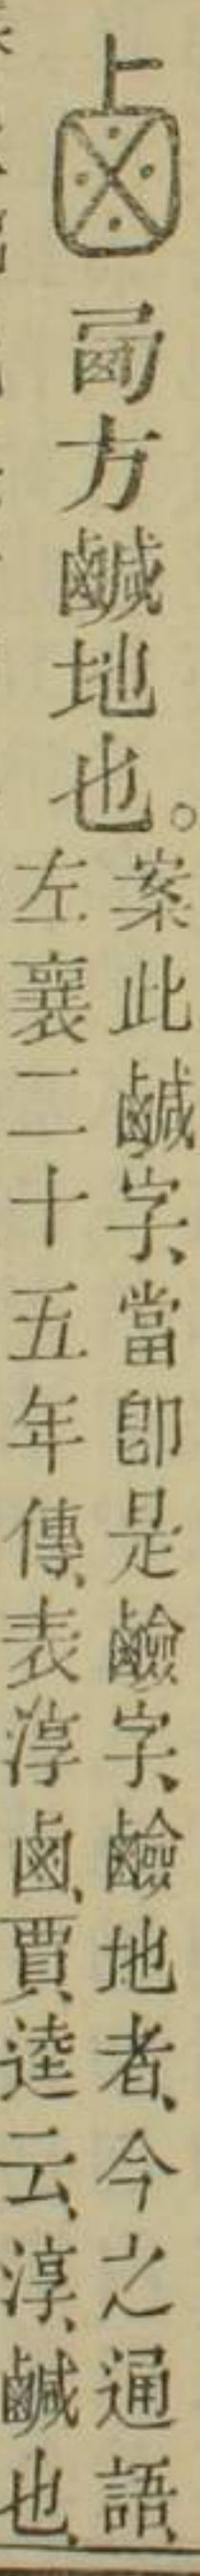 方鹹地也。
案此鹹字、當卽是鹼字、鹼地者、今之通語、
左襄二十五年傳、表淳鹵、賈逵云、淳、鹹也、